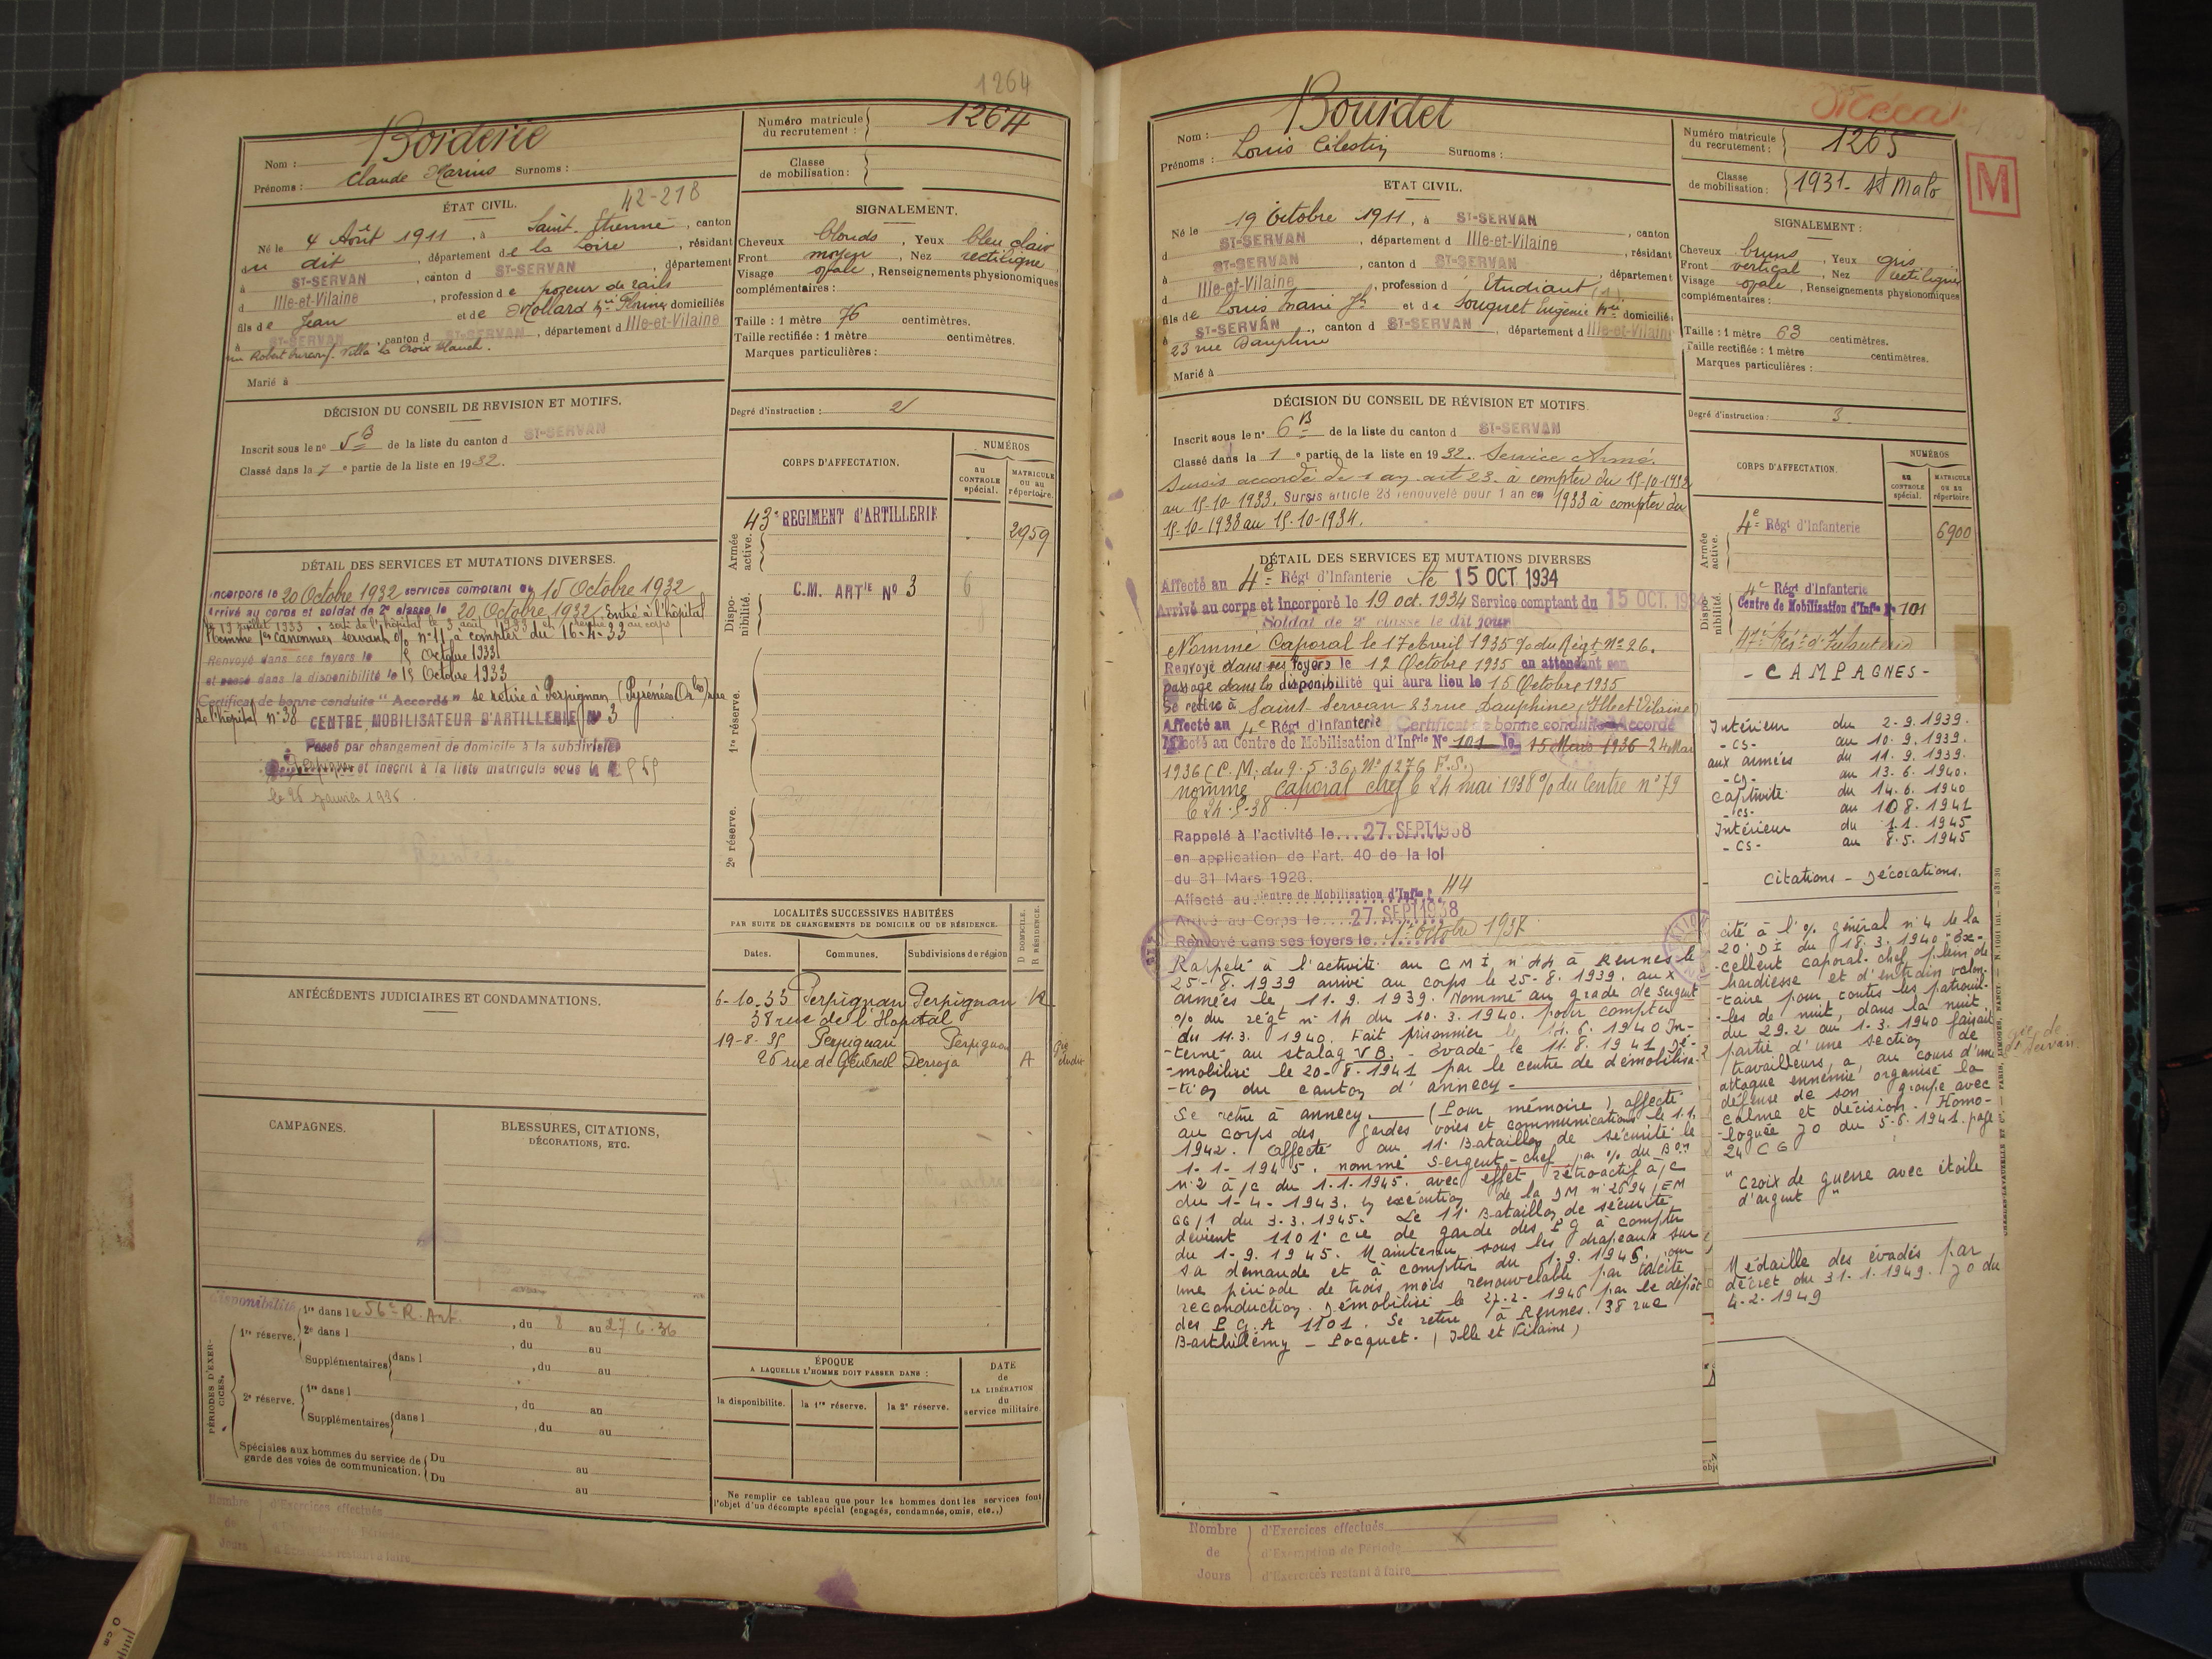 1264
Nom : Borderie
Prénoms : Claude Marius Surnoms :
Numéro matricule du recrutement : 1264
Classe de mobilisation :
ÉTAT CIVIL. 42-218
Né le 4 Août 1911, à Saint-Etienne, canton
du dit, département de la Loire, résidant
à ST-SERVAN, canton d ST-SERVAN, département
d Ille-et-Vilaine, profession de pozeur de rails
fils de Jean et de Mollard domiciliés
à ST-SERVAN, canton d ST-SERVAN, département d Ille-et-Vilaine
Villa la Croix
Marié à
SIGNALEMENT.
Cheveux blonds, Yeux bleu clair
Front moyen, Nez rectiligne
Visage ovale, Renseignements physionomiques
complémentaires :
Taille : 1 mètre 76 centimètres.
Taille rectifiée : 1 mètre centimètres.
Marques particulières :
DÉCISION DU CONSEIL DE REVISION ET MOTIFS.
Inscrit sous le no 5 B de la liste du canton d ST-SERVAN
Classé dans la 1 e partie de la liste en 1932.
Degré d'instruction : 2
CORPS D'AFFECTATION.
NUMÉROS
au CONTROLE spécial.
MATRICULE ou au répertoire.
Armée active.
43e REGIMENT d'ARTILLERIE 2959
Disponibilité.
C.M. ARTIE No 3 6
1re réserve.
2e réserve.
DÉTAIL DES SERVICES ET MUTATIONS DIVERSES.
Incorporé le 20 Octobre 1932 services comptant du 15 Octobre 1932
Arrivé au corps et soldat de 2e classe le 20 Octobre 1932. Entré à l'hôpital
le 19 juillet 1933, sorti de l'hôpital le 3 août 1933 et rentré au corps
Nommé 1er canonnier servant % no 11 à compter du 16-4-33
Renvoyé dans ses foyers le 15 Octobre 1933
et passé dans la disponibilité le 15 Octobre 1933
Certificat de bonne conduite "Accordé" se retire à Perpignan (Pyrénées Orles) rue
de l'hôpital no 38 CENTRE MOBILISATEUR D'ARTILLERIE No 3
Passé par changement de domicile à la subdivision
de Perpignan et inscrit à la liste matricule sous le n
le 26 janvier 1936.
ANTÉCÉDENTS JUDICIAIRES ET CONDAMNATIONS.
LOCALITÉS SUCCESSIVES HABITÉES
PAR SUITE DE CHANGEMENTS DE DOMICILE OU DE RÉSIDENCE.
D DOMICILE. R RÉSIDENCE.
Dates. Communes. Subdivisions de région
6-10-33 Perpignan Perpignan R
38 rue de l'Hopital
19-8-35 Perpignan Perpignan
26 rue de Général Derroja A
CAMPAGNES.
BLESSURES, CITATIONS, DÉCORATIONS, ETC.
PÉRIODES D'EXERCICES.
Disponibilité
1re réserve. 1re dans le 56e R. Art., du 8 au 27-6-36
2e dans l, du au
Supplémentaires dans l, du au
2e réserve. 1re dans l, du au
Supplémentaires dans l, du au
Spéciales aux hommes du service de garde des voies de communication. Du au
Du au
ÉPOQUE
A LAQUELLE L'HOMME DOIT PASSER DANS :
la disponibilite. la 1re réserve. la 2e réserve.
DATE de LA LIBÉRATION du service militaire.
Ne remplir ce tableau que pour les hommes dont les services font
l'objet d'un décompte spécial (engagés, condamnés, omis, etc..)
Nombre de Jours
d'Exercices effectués
d'Exercices restant à faire
Nom : Bourdet
Prénoms : Louis Célestin Surnoms :
Numéro matricule du recrutement : 1265
Classe de mobilisation : 1931 - St Malo
M
ETAT CIVIL.
Né le 19 Octobre 1911, à ST-SERVAN, canton
d ST-SERVAN, département d Ille-et-Vilaine, résidant
à ST-SERVAN, canton d ST-SERVAN, département
d Ille-et-Vilaine, profession d Etudiant (1)
fils de Louis Marie Jh et de Souquet Eugénie domiciliés
à ST-SERVAN, canton d ST-SERVAN, département d Ille-et-Vilaine
23 rue Dauphine
Marié à
SIGNALEMENT :
Cheveux bruns, Yeux gris
Front vertical, Nez rectiligne
Visage ovale, Renseignements physionomiques
complémentaires :
Taille : 1 mètre 63 centimètres.
Taille rectifiée : 1 mètre centimètres.
Marques particulières :
DÉCISION DU CONSEIL DE RÉVISION ET MOTIFS.
Inscrit sous le no 6 B de la liste du canton d ST-SERVAN
Classé dans la 1 e partie de la liste en 1932. Service Armé.
Sursis accordé de 1 an art 23. à compter du 15-10-1932
au 15-10-1933. Sursis article 23 renouvelé pour 1 an en 1933 à compter du
15-10-1933 au 15-10-1934.
Degré d'instruction : 3
CORPS D'AFFECTATION.
NUMÉROS
au CONTROLE spécial.
MATRICULE ou au répertoire.
Armée active.
4e Régt d'Infanterie 6900
Disponibilité.
4e Régt d'Infanterie
Centre de Mobilisation d'Infie No 101
DÉTAIL DES SERVICES ET MUTATIONS DIVERSES
Affecté au 4e Régt d'Infanterie le 15 OCT 1934
Arrivé au corps et incorporé le 19 oct. 1934 Service comptant du 15 OCT. 1934
Soldat de 2e classe le dit jour
Nommé Caporal le 17 Avril 1935 % du Régt No 26.
Renvoyé dans ses foyers le 12 Octobre 1935 en attendant son
passage dans la disponibilité qui aura lieu le 15 Octobre 1935
Se retire à Saint-Servan 23 rue Dauphine (Ille et Vilaine)
Affecté au 4e Régt d'Infanterie Certificat de bonne conduite Accordé
Affecté au Centre de Mobilisation d'Infie No 101 le 15 Mars 1936 24 Mai
1936 (C.M. du 9.5.36. No 1276 F.S.)
nommé caporal chef le 24 mai 1938 % du Centre no 79
le 24-5-38
Rappelé à l'activité le 27 SEPT 1938
en application de l'art. 40 de la loi
du 31 Mars 1928.
Affecté au Centre de Mobilisation d'Infie 44
Arrivé au Corps le 27 SEPT 1938
Renvoyé dans ses foyers le 1er Octobre 1938
Rappelé à l'activité au C M I no 44 à Rennes le
25-8-1939 arrivé au corps le 25-8.1939. aux
armées le 11-9.1939. Nommé au grade de sergent
% du régt no 14 du 10.3.1940. pour compter
du 11.3.1940. Fait prisonnier le 14.6.1940 In-
-terné au stalag V B. - évadé le 11.8.1941 dé-
-mobilisé le 20-8.1941 par le centre de démobilisa-
-tion du canton d'annecy
Se retire à annecy (Pour mémoire) affecté
au corps des gardes voies et communications le 1.1.
1942. affecté au 11e Bataillon de sécurité le
1-1-1945. nommé sergent-chef par % du Bon
no 2 à/c du 1.1.1945. avec effet rétroactif à/c
du 1-4-1943. en exécution de la DM no 2694/EM
GG/1 du 3-3.1945. Le 11e Bataillon de sécurité
devient 1101e cie de garde des P G à compter
du 1-9.1945. Maintenu sous les drapeaux sur
sa demande et à compter du 1.9.1945. pour
une période de trois mois renouvelable par tacite
reconduction. Démobilisé le 27.2.1946 par le dépôt
des P.G.A 1101. Se retire à Rennes. 38 rue
Barthélémy - Pocquet. (Ille et Vilaine)
- CAMPAGNES -
Intérieur du 2-9.1939.
-cs- au 10.9.1939.
aux armées du 11.9.1939.
-cs- au 13.6.1940.
Captivité du 14.6.1940
-cs- au 10 8.1941
Intérieur du 1.1.1945
-cs- au 8.5.1945
Citations - Décorations.
cité à l'% général no 4 de la
20e D I du 18.3.1940 - Ex-
-cellent caporal-chef plein de
hardiesse et d'entrain volon-
-taire pour toutes les patrouil-
-les de nuit, dans la nuit
du 29.2 au 1-3.1940 faisait
partie d'une section de
travailleurs, a, au cours d'une
attaque ennemie, organisé la
défense de son groupe avec
calme et décision. Homo-
-loguée JO du 5-6.1941. page
24 C G
" Croix de guerre avec étoile
d'argent "
Médaille des évadés par
décret du 31-1.1949. JO du
4-2.1949
Nombre de Jours
d'Exercices effectués
d'Exemption de Période
d'Exercices restant à faire